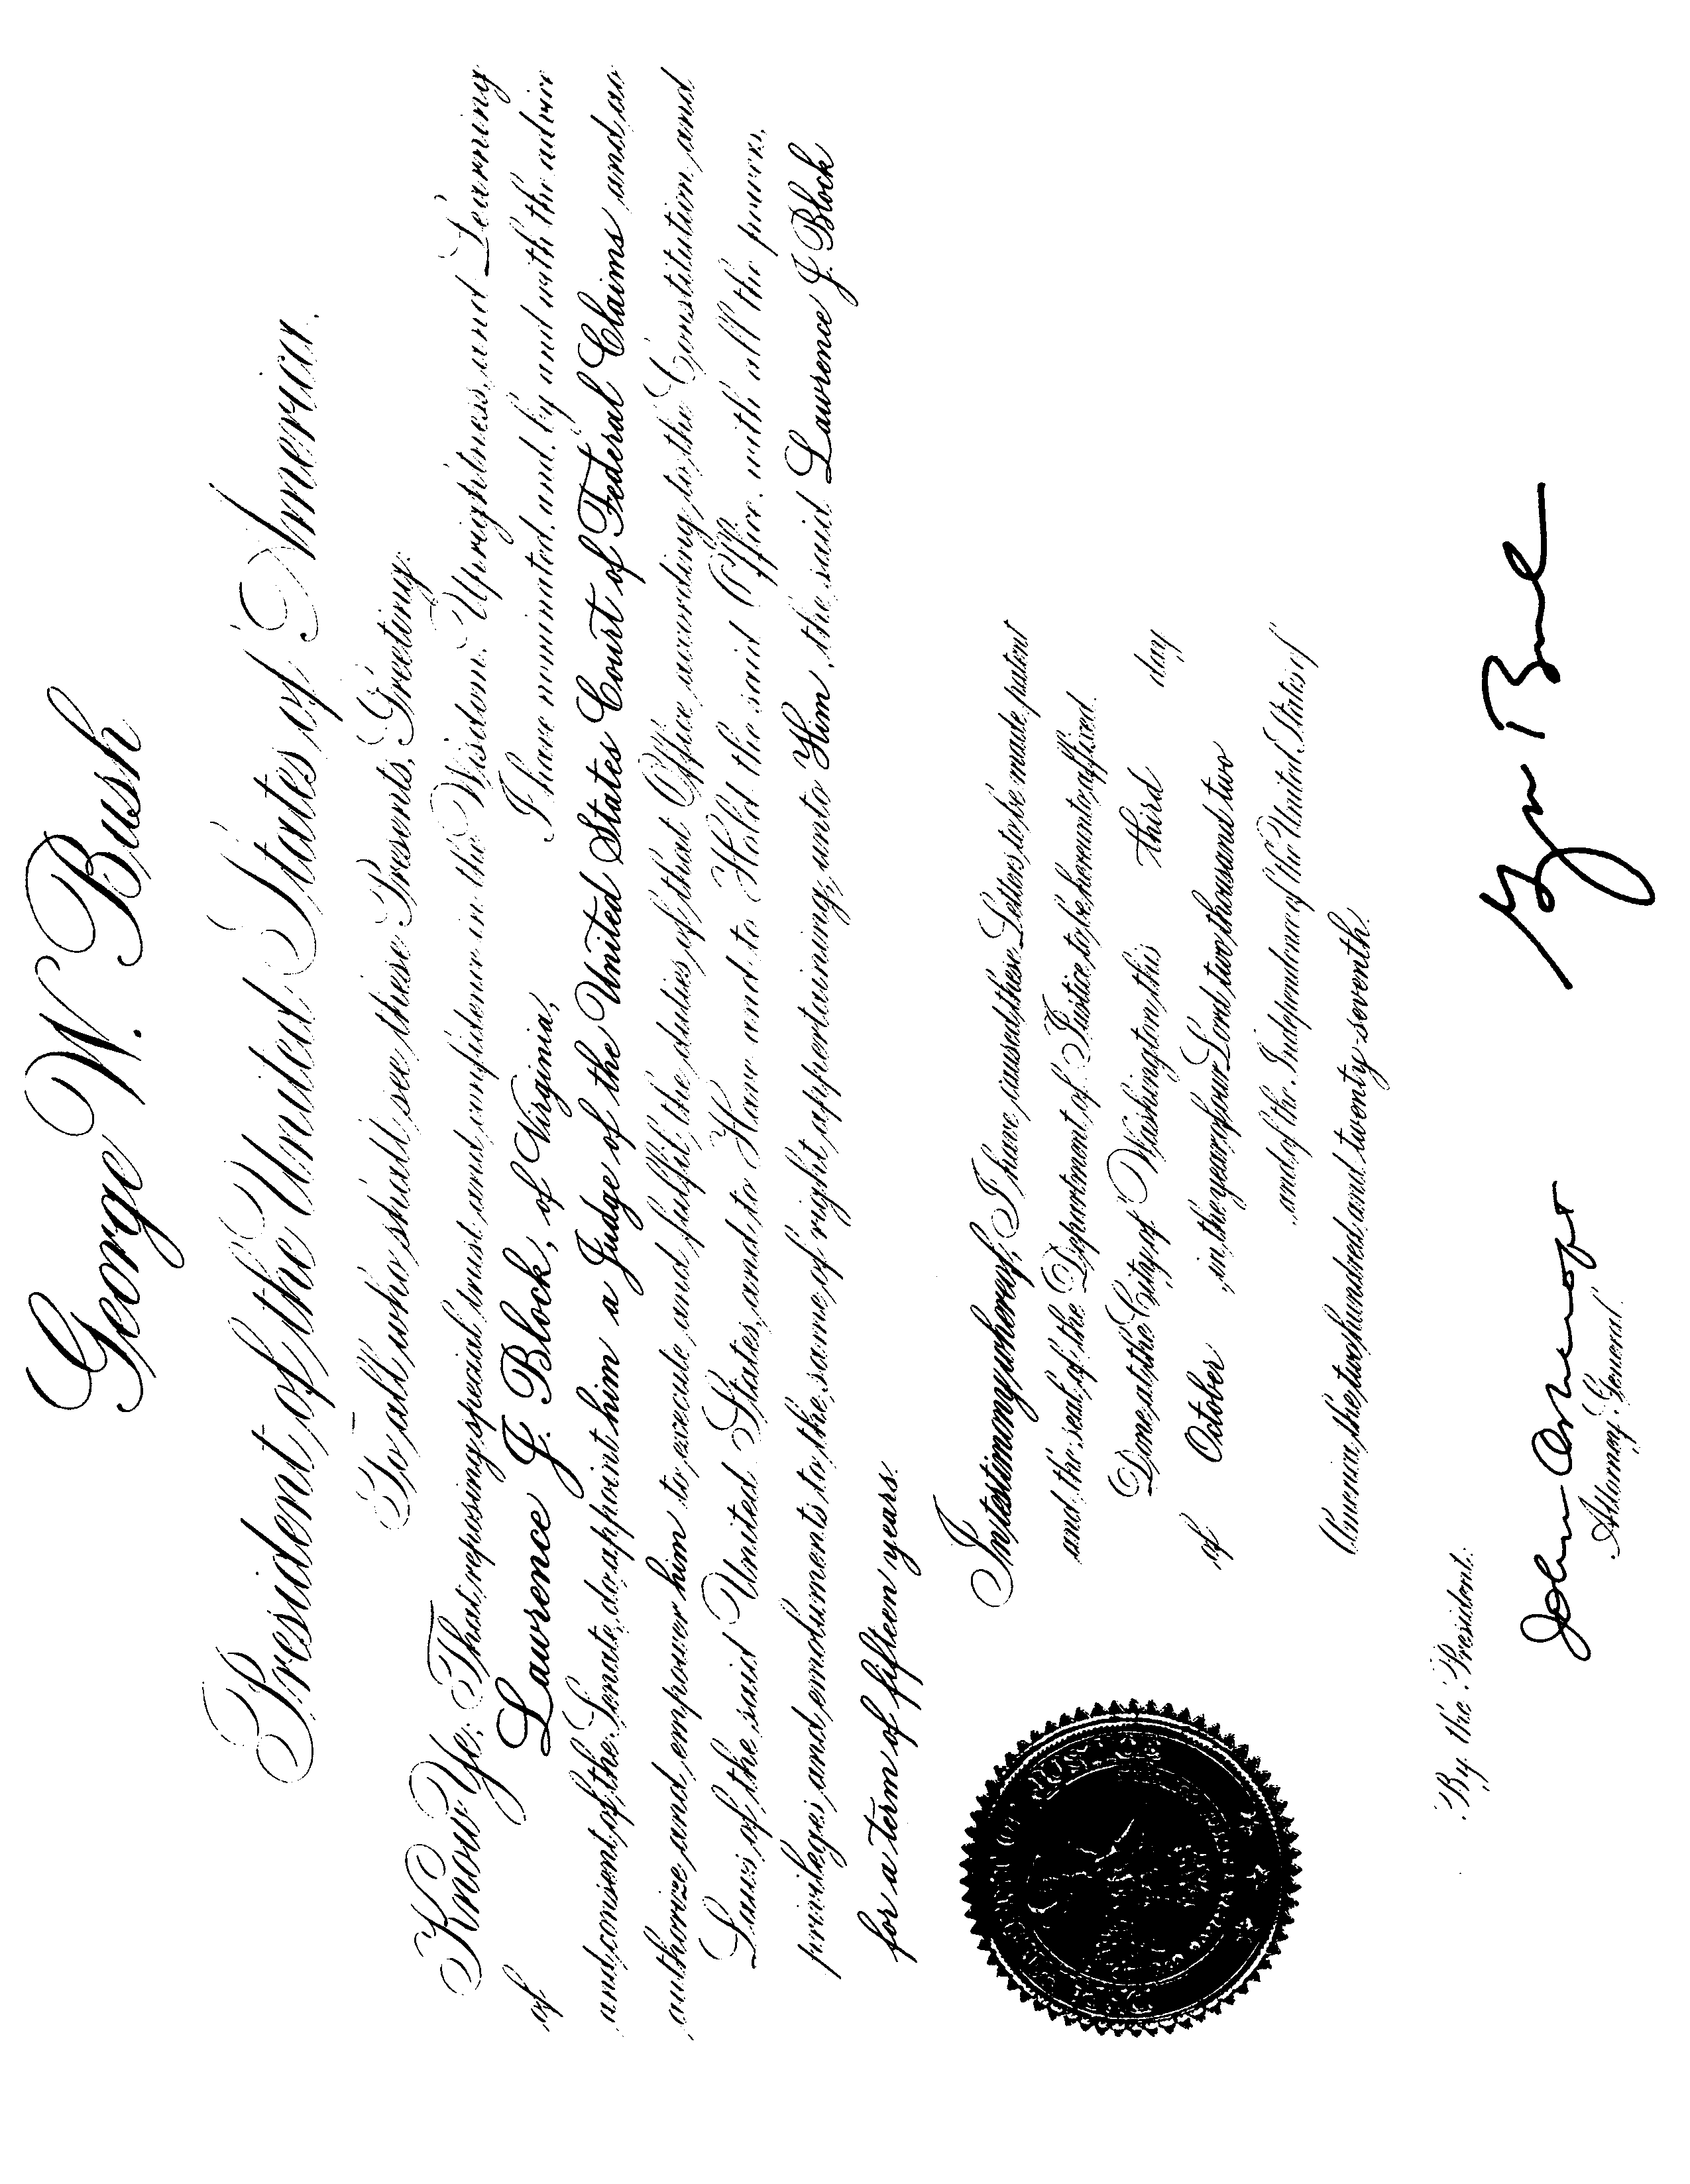 George W. Bush
President of the United States of America.
To all who shall see these Presents, Greeting:
Know Ye; That reposing special trust and confidence in the Wisdom, Uprightness, and Learning
of Lawrence J. Block, of Virginia, I have nominated, and, by and with the advice
and consent of the Senate, do appoint him a Judge of the United States Court of Federal Claims and do
authorize and empower him to execute and fulfil the duties of that Office according to the Constitution and
Laws of the said United States, and to Have and to Hold the said Office, with all the powers,
privileges and emoluments to the same of right appertaining, unto Him, the said Lawrence J. Block
for a term of fifteen years.
In testimony whereof, I have caused these Letters to be made patent
and the seal of the Department of Justice to be hereunto affixed.
Done at the City of Washington this third day
of October in the year of our Lord two thousand two
and of the Independence of the United States of
America the two hundred and twenty-seventh.
By the President:
John Ashcroft
Attorney General
JUSTICE